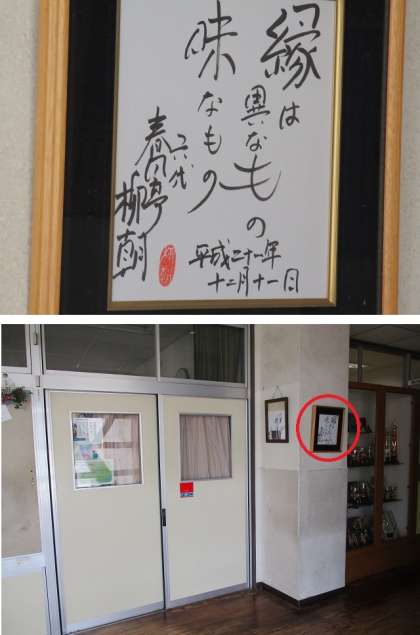 縁は
異なもの
味なもの
六代
春風亭柳朝
平成二十一年
十二月十一日